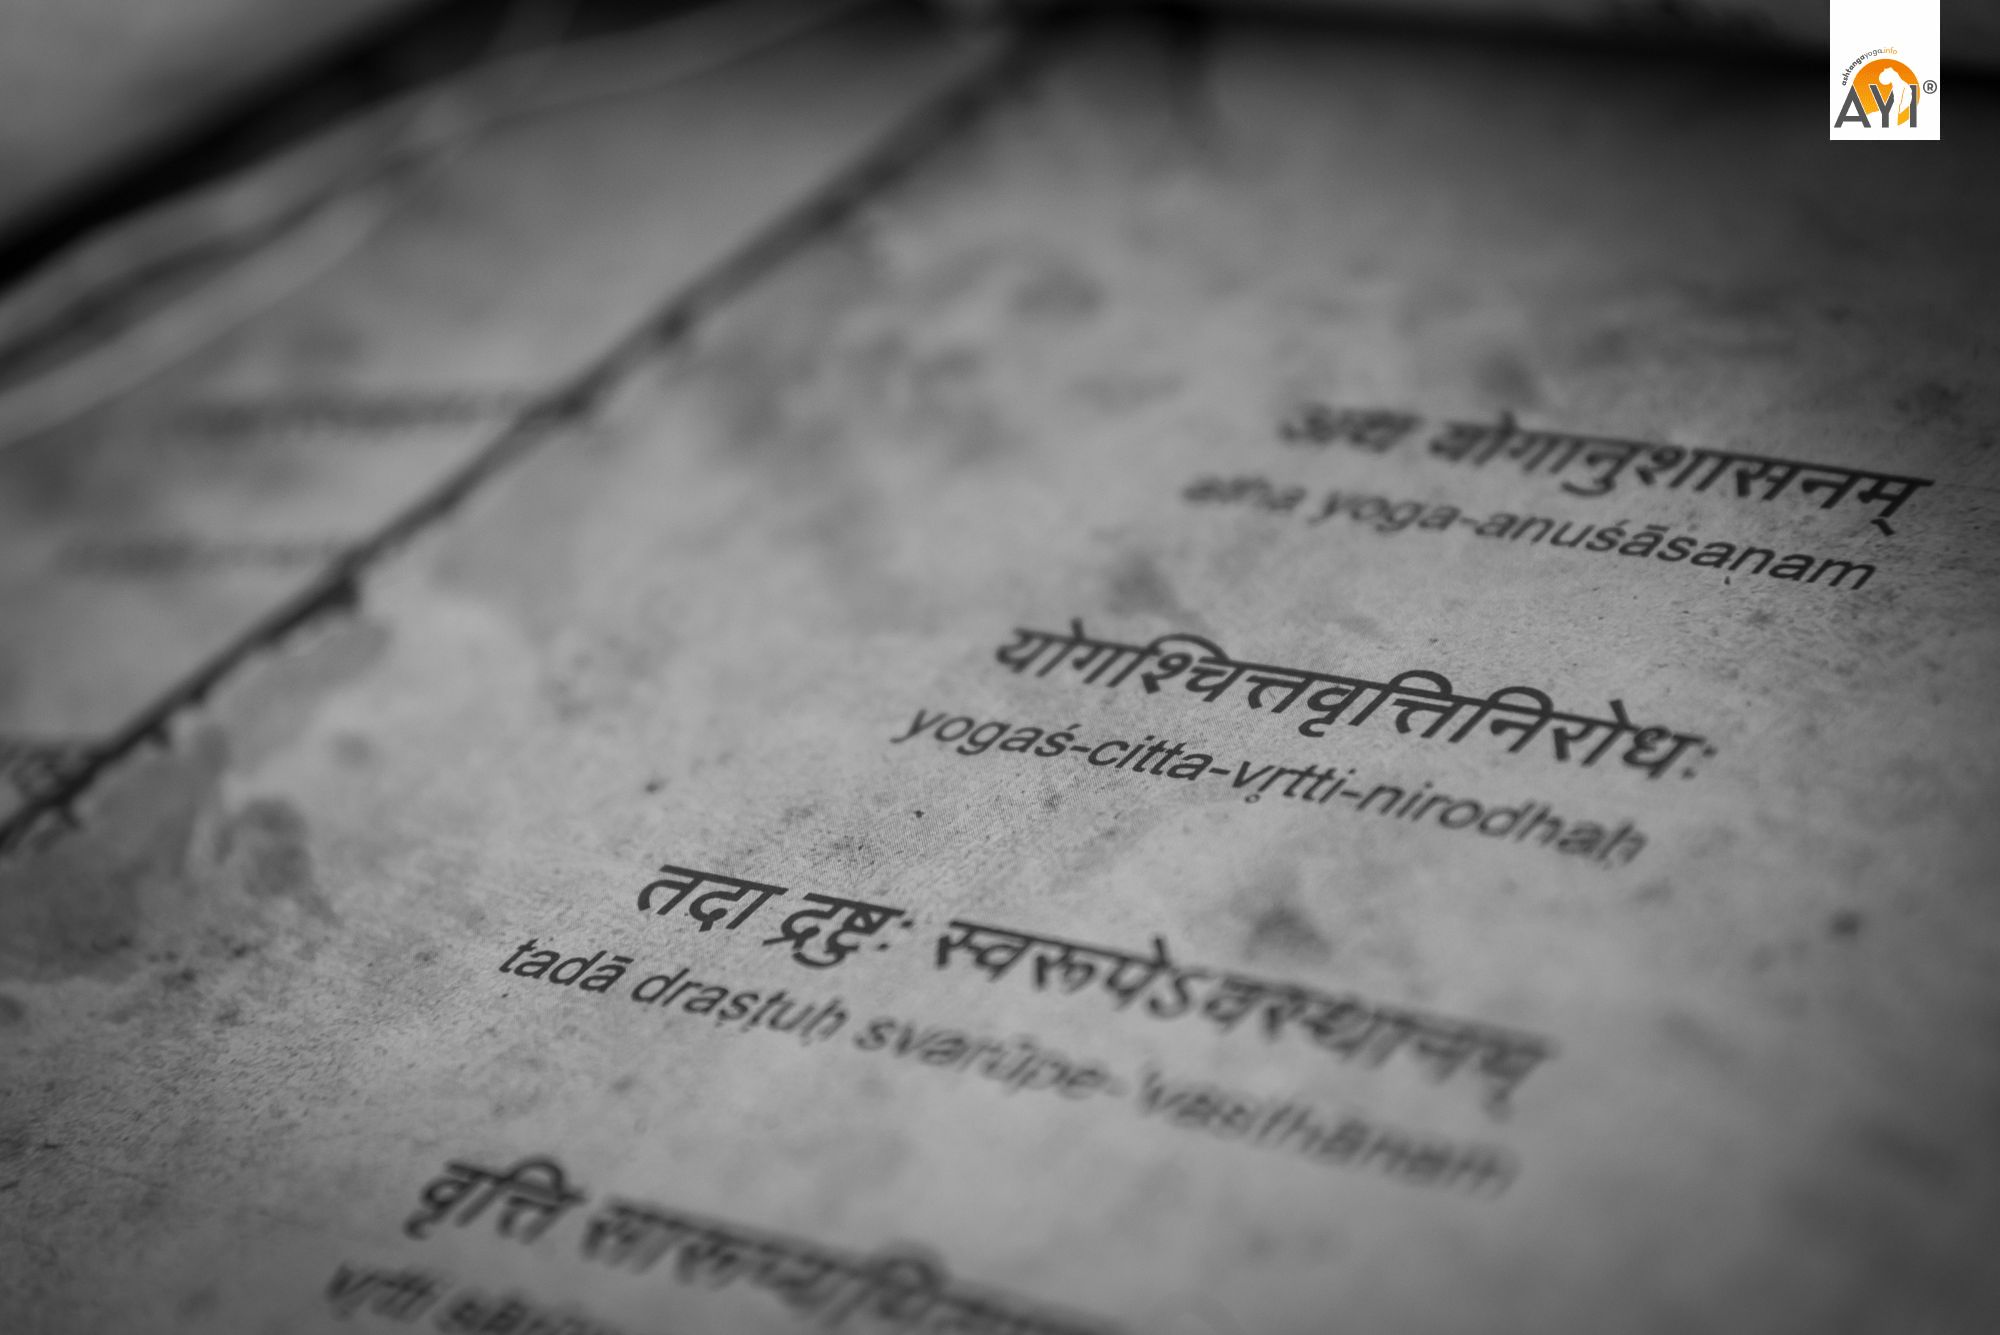 ashtangayoga.info
AYI®
अथ योगानुशासनम्
atha yoga-anuśāsaṇam
योगश्चित्तवृत्तिनिरोधः
yogaś-citta-vṛtti-nirodhaḥ
तदा द्रष्टुः स्वरूपेऽवस्थानम्
tadā draṣṭuḥ svarūpe-'vasthānam
वृत्ति
vṛtti